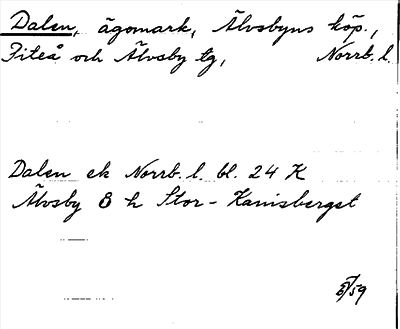 Dalen, ägomark, Älvsbyns köp.,
Piteå och Älvsby tg, Norrb. l.
Dalen ek Norrb. l. bl. 24 K
Älvsby 8 h Stor-Kanisberget